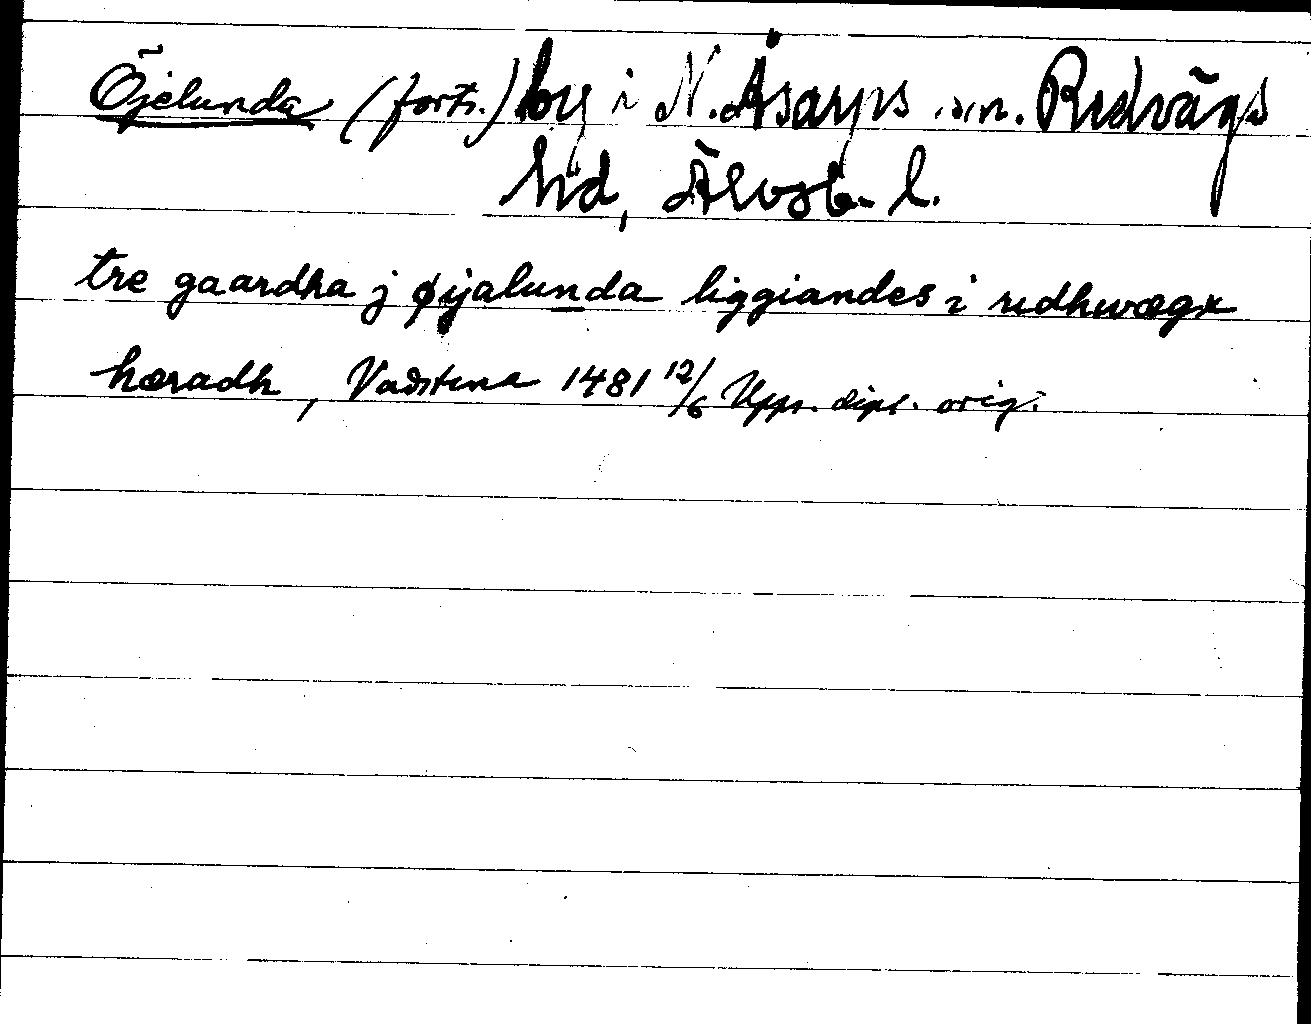 Öjelunda (forts.) by i N. Åsarps sn. Redvägs
hd, Älvsb. l.
tre gaardha j øijalunda liggiandes i redhwægx
hæradh, Vadstena 1481 12/6 Upps. dipl. orig.